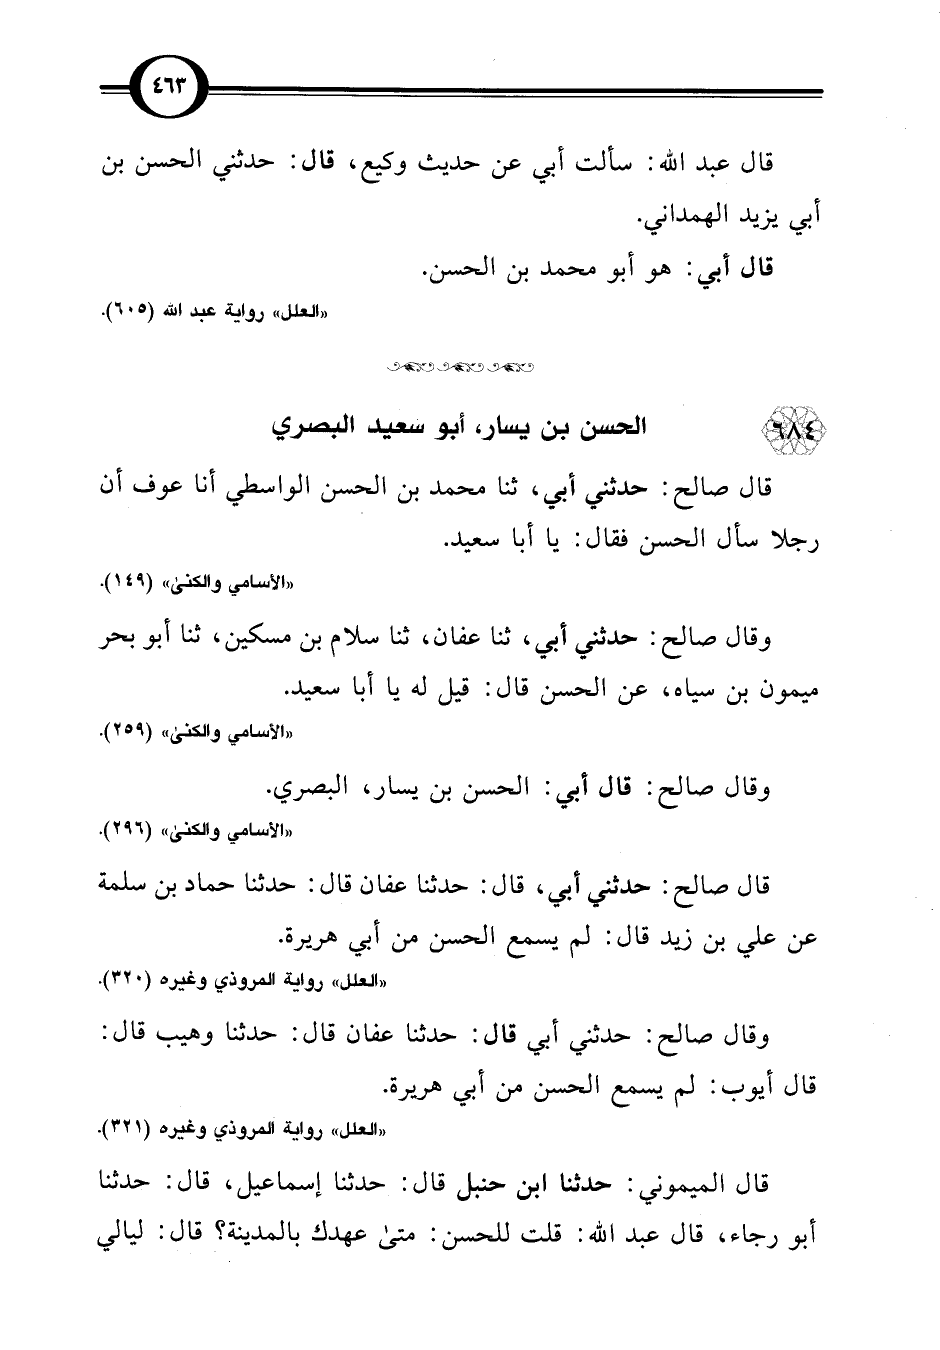 ٤٦٣
قال عبد الله: سألت أبي عن حديث وكيع، قال: حدثني الحسن بن
أبي يزيد الهمداني.
قال أبي: هو أبو محمد بن الحسن.
«العلل» رواية عبد الله (٦٠٥).
٦٨٤ الحسن بن يسار، أبو سعيد البصري
قال صالح: حدثني أبي، ثنا محمد بن الحسن الواسطي أنا عوف أن
رجلا سأل الحسن فقال: يا أبا سعيد.
«الأسامي والكنىٰ» (١٤٩).
وقال صالح: حدثني أبي، ثنا عفان، ثنا سلام بن مسكين، ثنا أبو بحر
ميمون بن سياه، عن الحسن قال: قيل له يا أبا سعيد.
«الأسامي والكنىٰ» (٢٥٩).
وقال صالح: قال أبي: الحسن بن يسار، البصري.
«الأسامي والكنىٰ» (٢٩٦).
قال صالح: حدثني أبي، قال: حدثنا عفان قال: حدثنا حماد بن سلمة
عن علي بن زيد قال: لم يسمع الحسن من أبي هريرة.
«العلل» رواية المروذي وغيره (٣٢٠).
وقال صالح: حدثني أبي قال: حدثنا عفان قال: حدثنا وهيب قال:
قال أيوب: لم يسمع الحسن من أبي هريرة.
«العلل» رواية المروذي وغيره (٣٢١).
قال الميموني: حدثنا ابن حنبل قال: حدثنا إسماعيل، قال: حدثنا
أبو رجاء، قال عبد الله: قلت للحسن: متىٰ عهدك بالمدينة؟ قال: ليالي